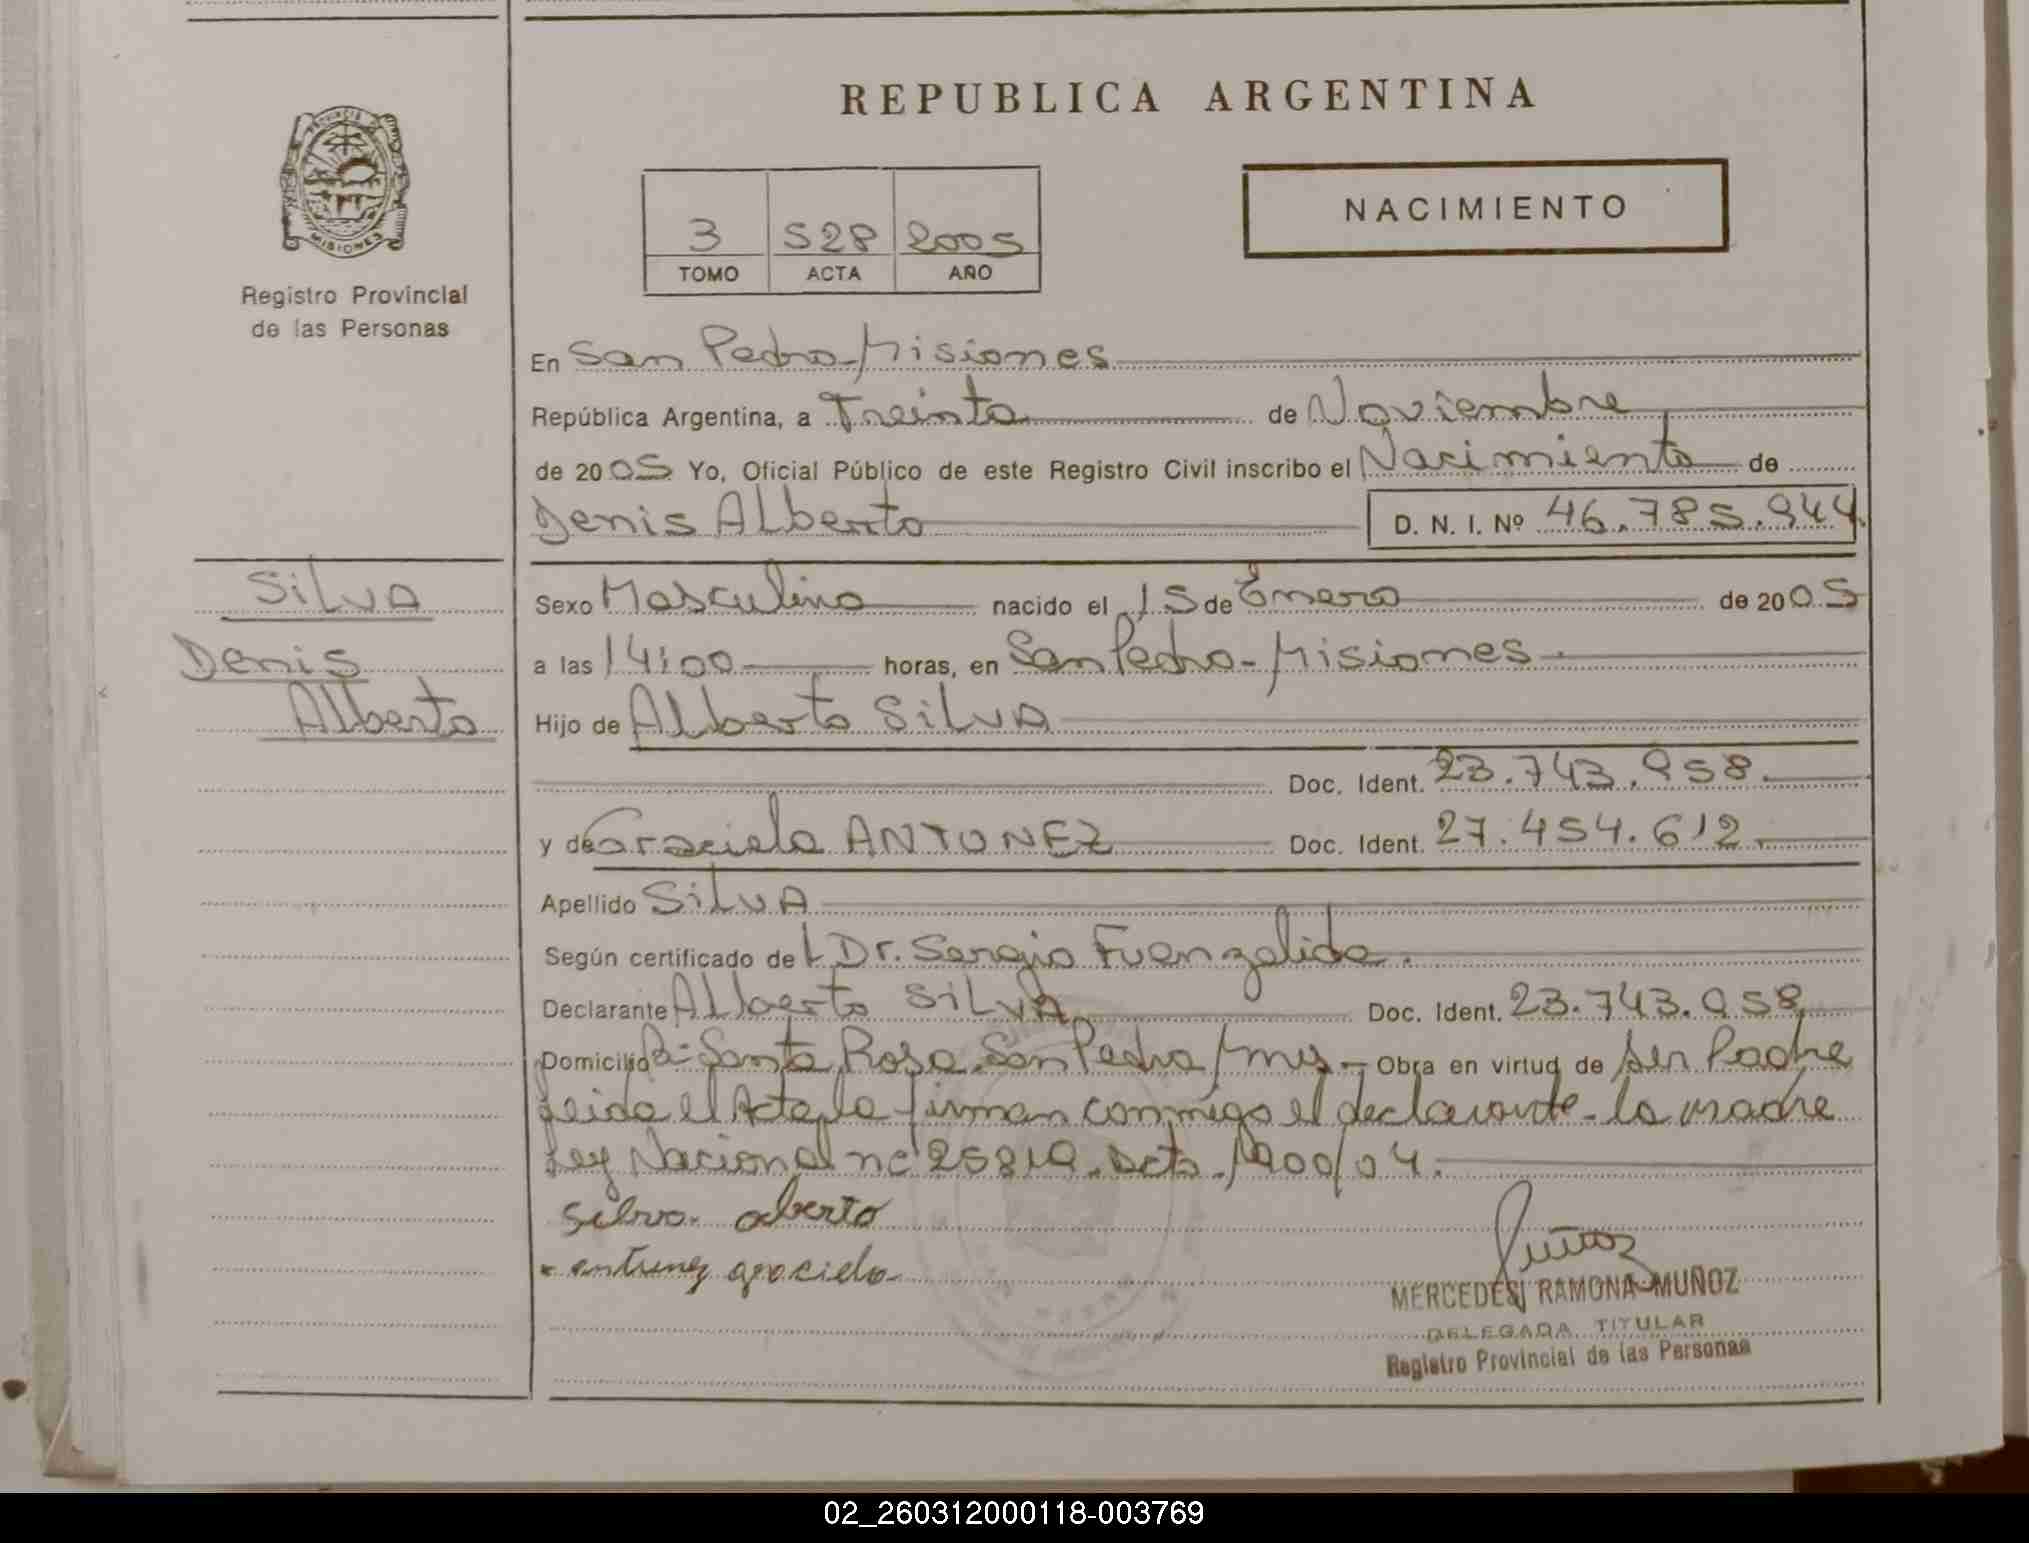 REPUBLICA ARGENTINA
PROVINCIA DE
MISIONES
Registro Provincial
de las Personas
3 528 2005
TOMO ACTA AÑO
NACIMIENTO
En San Pedro-Misiones
República Argentina, a Treinta de Noviembre
de 2005 Yo, Oficial Público de este Registro Civil inscribo el Nacimiento de
Denis Alberto D. N. I. Nº 46.785.944
Silva
Denis
Alberto
Sexo Masculino nacido el 15 de Enero de 2005
a las 14:00 horas, en San Pedro-Misiones
Hijo de Alberto SILVA
Doc. Ident. 23.743.958.
y de Graciela ANTUNEZ Doc. Ident. 27.454.612
Apellido SILVA
Según certificado del Dr. Sergio Fuenzalida.
Declarante Alberto SILVA Doc. Ident. 23.743.958
Domicilio Bº Santa Rosa. San Pedro Mnes - Obra en virtud de ser Padre
leida el Acta, la firman conmigo el declarante - la madre
Ley Nacional nº 25819. Dcto. 1900/04.
silva alberto
antunez graciela
Muñoz
MERCEDES RAMONA MUÑOZ
DELEGADA TITULAR
Registro Provincial de las Personas
02_260312000118-003769